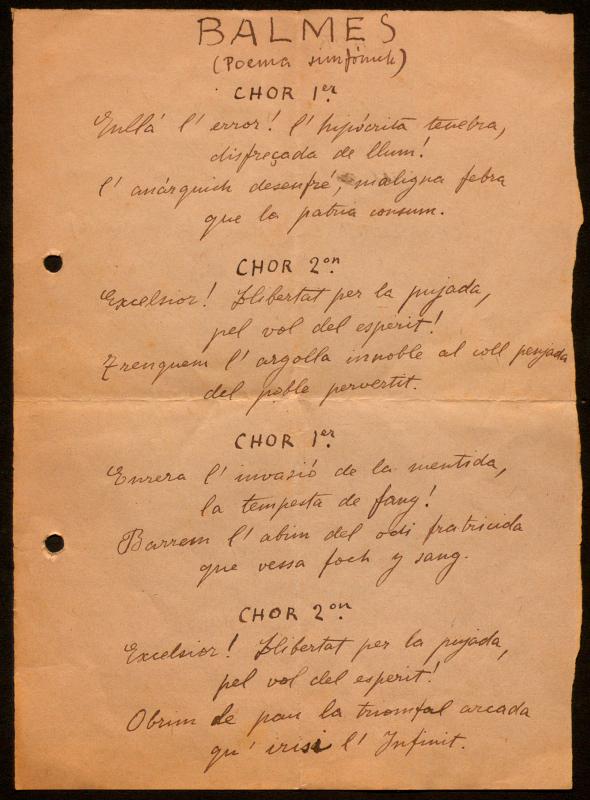 BALMES
(Poema simfónich)
CHOR 1er
Enllá l'error! l'hipócrita tenebra,
disfreçada de llum!
l'anárquich desenfré, maligna febra
que la patria consum.
CHOR 2on
Excelsior! Llibertat per la pujada,
pel vol del esperit!
Trenquem l'argolla innoble al coll penjada
del poble pervertit.
CHOR 1er
Enrera l'invasió de la mentida,
la tempesta de fang!
Barrem l'abim del odi fratricida
que vessa foch y sang.
CHOR 2on
Excelsior! Llibertat per la pujada,
pel vol del esperit!
Obrim de pau la triomfal arcada
qu'irisi l'Infinit.